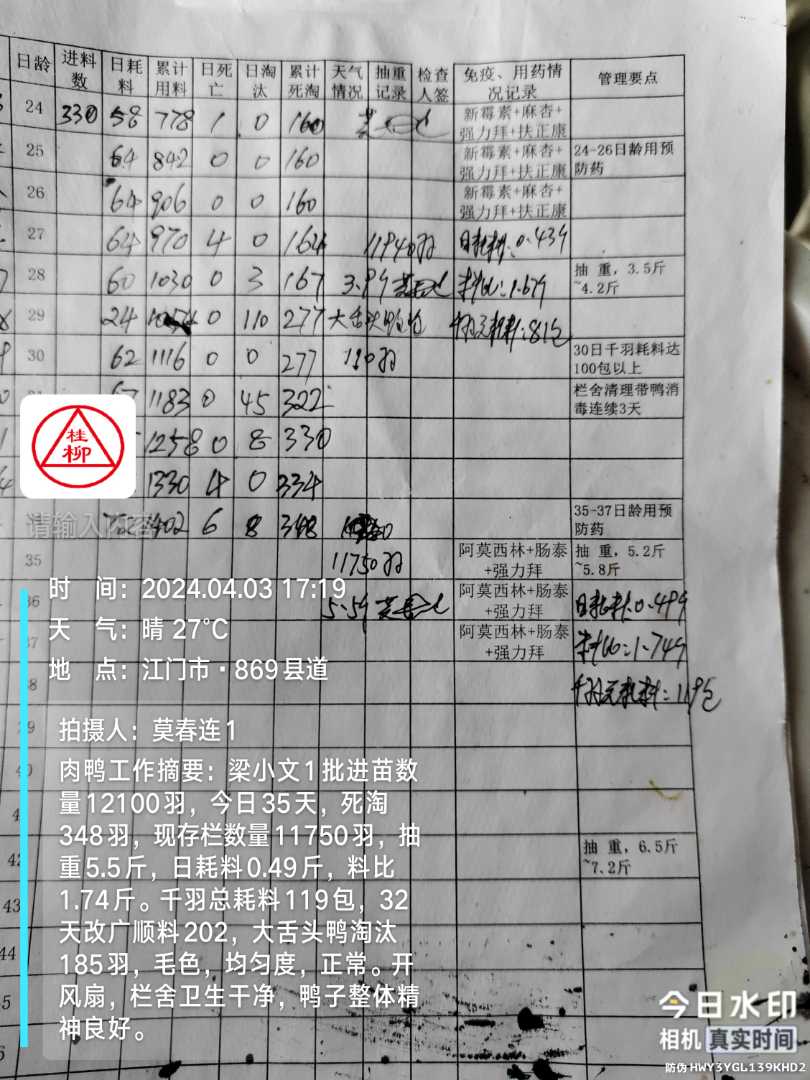 日龄 进料数 日耗料 累计用料 日死亡 日淘汰 累计死淘 天气情况 抽重记录 检查人签 免疫、用药情况记录 管理要点
24 330 58 778 1 0 160 新霉素+麻杏+
强力拜+扶正康
25 64 842 0 0 160 新霉素+麻杏+
强力拜+扶正康
24-26日龄用预
防药
26 64 906 0 0 160 新霉素+麻杏+
强力拜+扶正康
27 64 970 4 0 164 11940羽 日耗料:0.43斤
28 60 1030 0 3 167 3.9斤 料比:1.67斤
抽 重,3.5斤
~4.2斤
29 24 1054 0 110 277 大舌头鸭 千羽总耗料:81包
30 62 1116 0 0 277 110羽
30日千羽耗料达
100包以上
67 1183 0 45 322
栏舍清理带鸭消
毒连续3天
1258 0 8 330
1330 4 0 334
1402 6 8 348
35-37日龄用预
防药
35 11750羽 阿莫西林+肠泰
+强力拜
抽 重,5.2斤
~5.8斤
36 5.5斤 阿莫西林+肠泰
+强力拜
日耗料:0.49斤
37 阿莫西林+肠泰
+强力拜
料比:1.74斤
38 千羽总耗料:119包
39
40
42 抽 重,6.5斤
~7.2斤
43
44
桂
柳
请输入内容
时 间:2024.04.03 17:19
天 气:晴 27℃
地 点:江门市·869县道
拍摄人:莫春连1
肉鸭工作摘要:梁小文1批进苗数
量12100羽,今日35天,死淘
348羽,现存栏数量11750羽,抽
重5.5斤,日耗料0.49斤,料比
1.74斤。千羽总耗料119包,32
天改广顺料202,大舌头鸭淘汰
185羽,毛色,均匀度,正常。开
风扇,栏舍卫生干净,鸭子整体精
神良好。
今日水印
相机 真实时间
防伪 HWY3YGL139KHD2